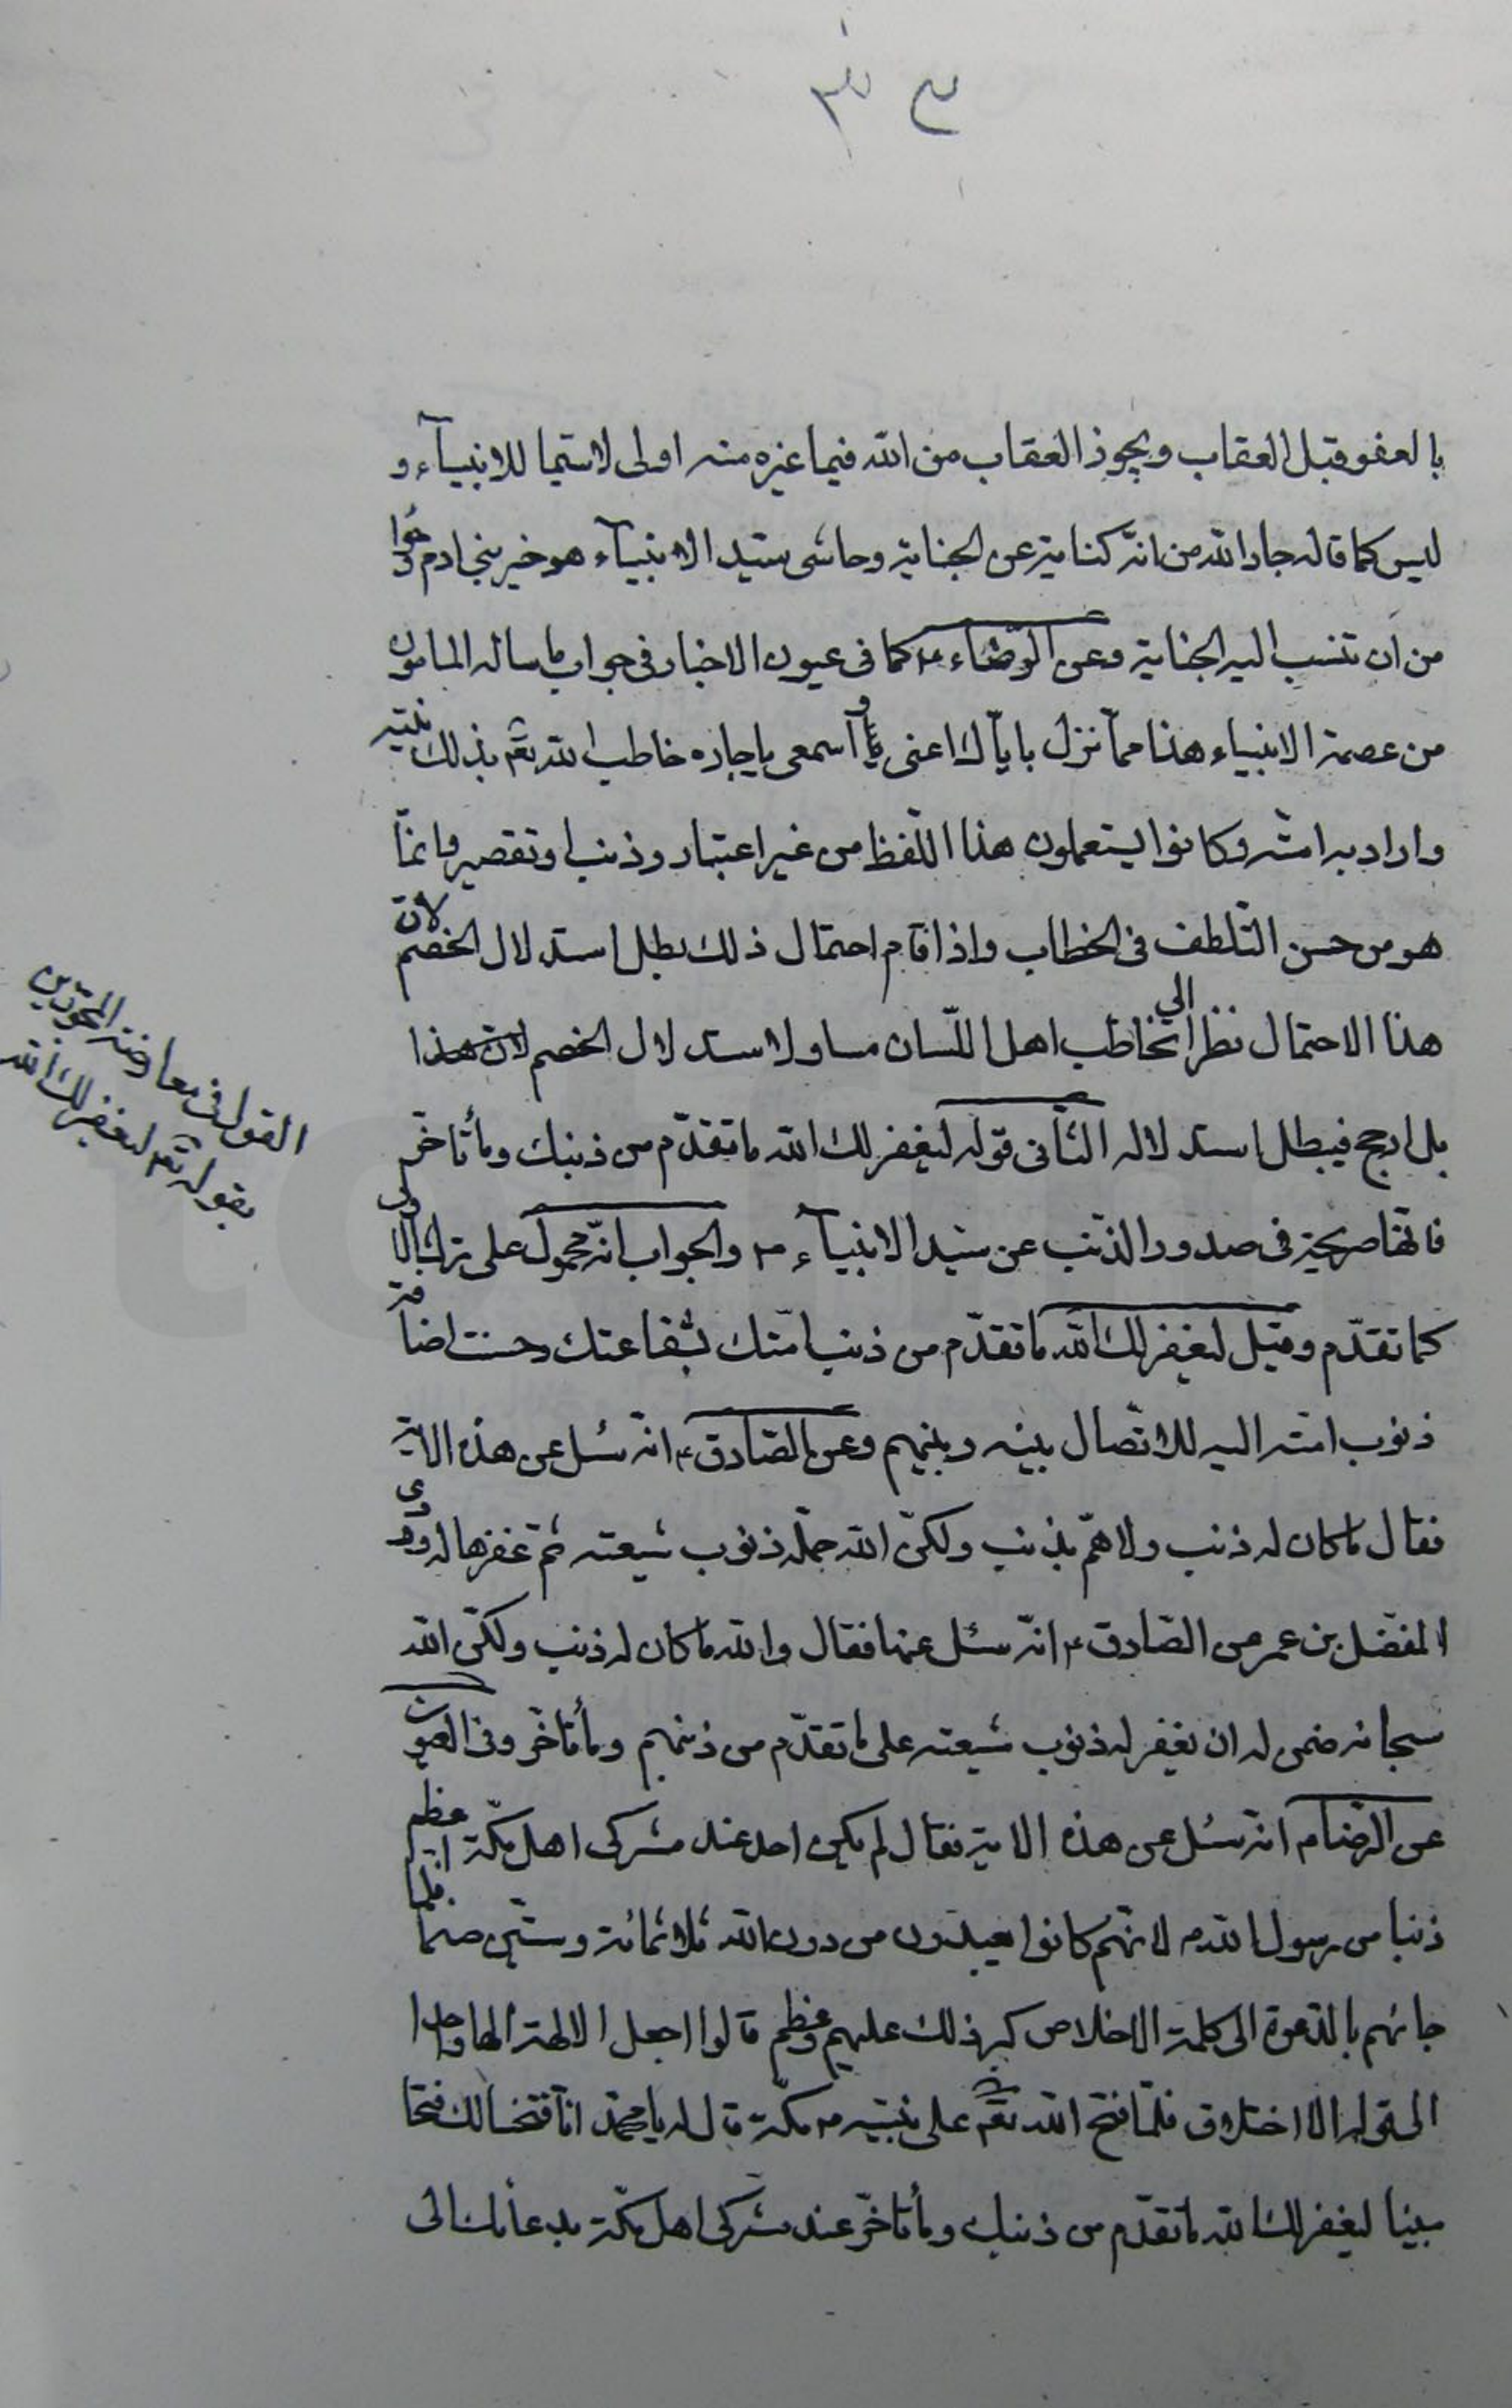 بالعفو قبل العقاب ويجوز العقاب من الله فيما غيره منه اولى لاسيما للانبيآء و
ليس كما قاله جار الله من انه كناية عن الجناية وحاشى سيد الانبيآء هو خير بني ادم وحوا
من ان تنسب اليه الجناية وعن الرضاء ع كما فى عيون الاخبار فى جواب ما ساله المامون
من عصمة الانبياء هذا مما نزل باياك اعنى و اسمعى ياجاره خاطب الله تعم بذلك نبيه
واراد به امته وكانوا يستعملون هذا اللفظ من غير اعتبار وذنب او تقصير وانما
هو من حسن التلطف فى الخطاب واذا قام احتمال ذلك بطل استدلال الخصم لان
هذا الاحتمال نظرا الى تخاطب اهل اللسان مساو لاستدلال الخصم لان هذا
بل ارجح فيبطل استدلاله الثانى قوله ليغفر لك الله ما تقدم من ذنبك وما تاخر
فانها صريحة فى صدور الذنب عن سيد الانبيآء ص والجواب انه محمول على ترك الاولى
كما تقدم وقيل ليغفر لك الله ما تقدم من ذنب امتك بشفاعتك وحسنت اضافة
ذنوب امته اليه للاتصال بينه وبينهم وعن الصادق ع انه سئل عن هذه الاية
فقال ما كان له ذنب ولا هم بذنب ولكن الله حمله ذنوب شيعته ثم غفرها له وروى
المفضل بن عمر عن الصادق ع انه سئل عنها فقال والله ما كان له ذنب ولكن الله
سبحانه ضمن له ان يغفر له ذنوب شيعته على ما تقدم من ذنبهم وما تاخر وفى العيون
عن الرضا م انه سئل عن هذه الاية فقال لم يكن احد عند مشركى اهل مكة اعظم
ذنبا من رسول الله ص لانهم كانوا يعبدون من دون الله ثلاثمائة وستين صنما فلما
جائهم بالدعوة الى كلمة الاخلاص كبر ذلك عليهم وعظم قالوا اجعل الالهة الها واحدا
الى قوله الا اختلاق فلما فتح الله تعم على نبيه ص مكة قال له يا محمد انا فتحنا لك فتحا
مبينا ليغفر لك الله ما تقدم من ذنبك وما تاخر عند مشركى اهل مكة بدعائك الى
القول فى معارضة المجوزين
بقوله تعم ليغفر لك الله